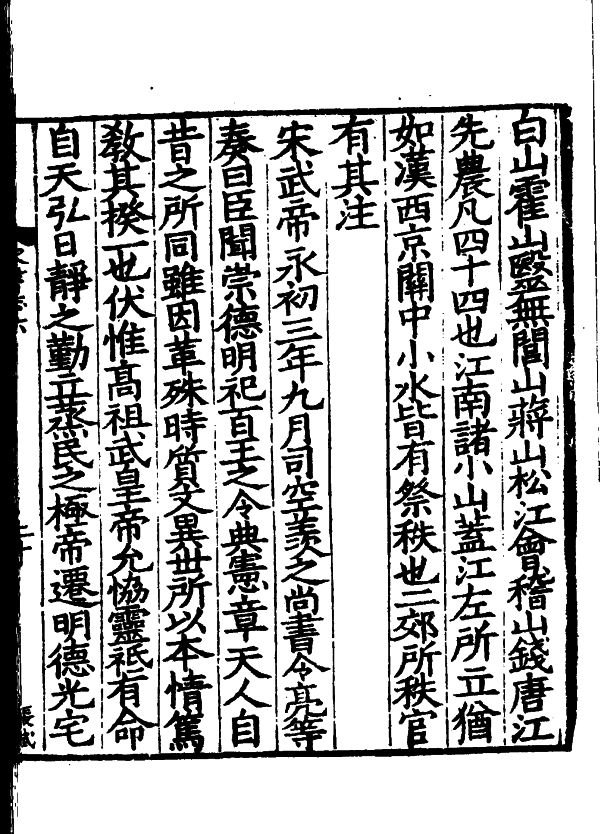 白山霍山毉無閭山蔣山松江會稽山錢唐江
先農凡四十四也江南諸小山蓋江左所立猶
如漢西京關中小水皆有祭秩也二郊所秩官
有其注
宋武帝永初三年九月司空羨之尚書令亮等
奏曰臣聞崇德明祀百王之令典憲章天人自
昔之所同雖因革殊時質文異世所以本情篤
敎其揆一也伏惟高祖武皇帝允協靈祇有命
自天弘日靜之勤立蒸民之極帝遷明德光宅